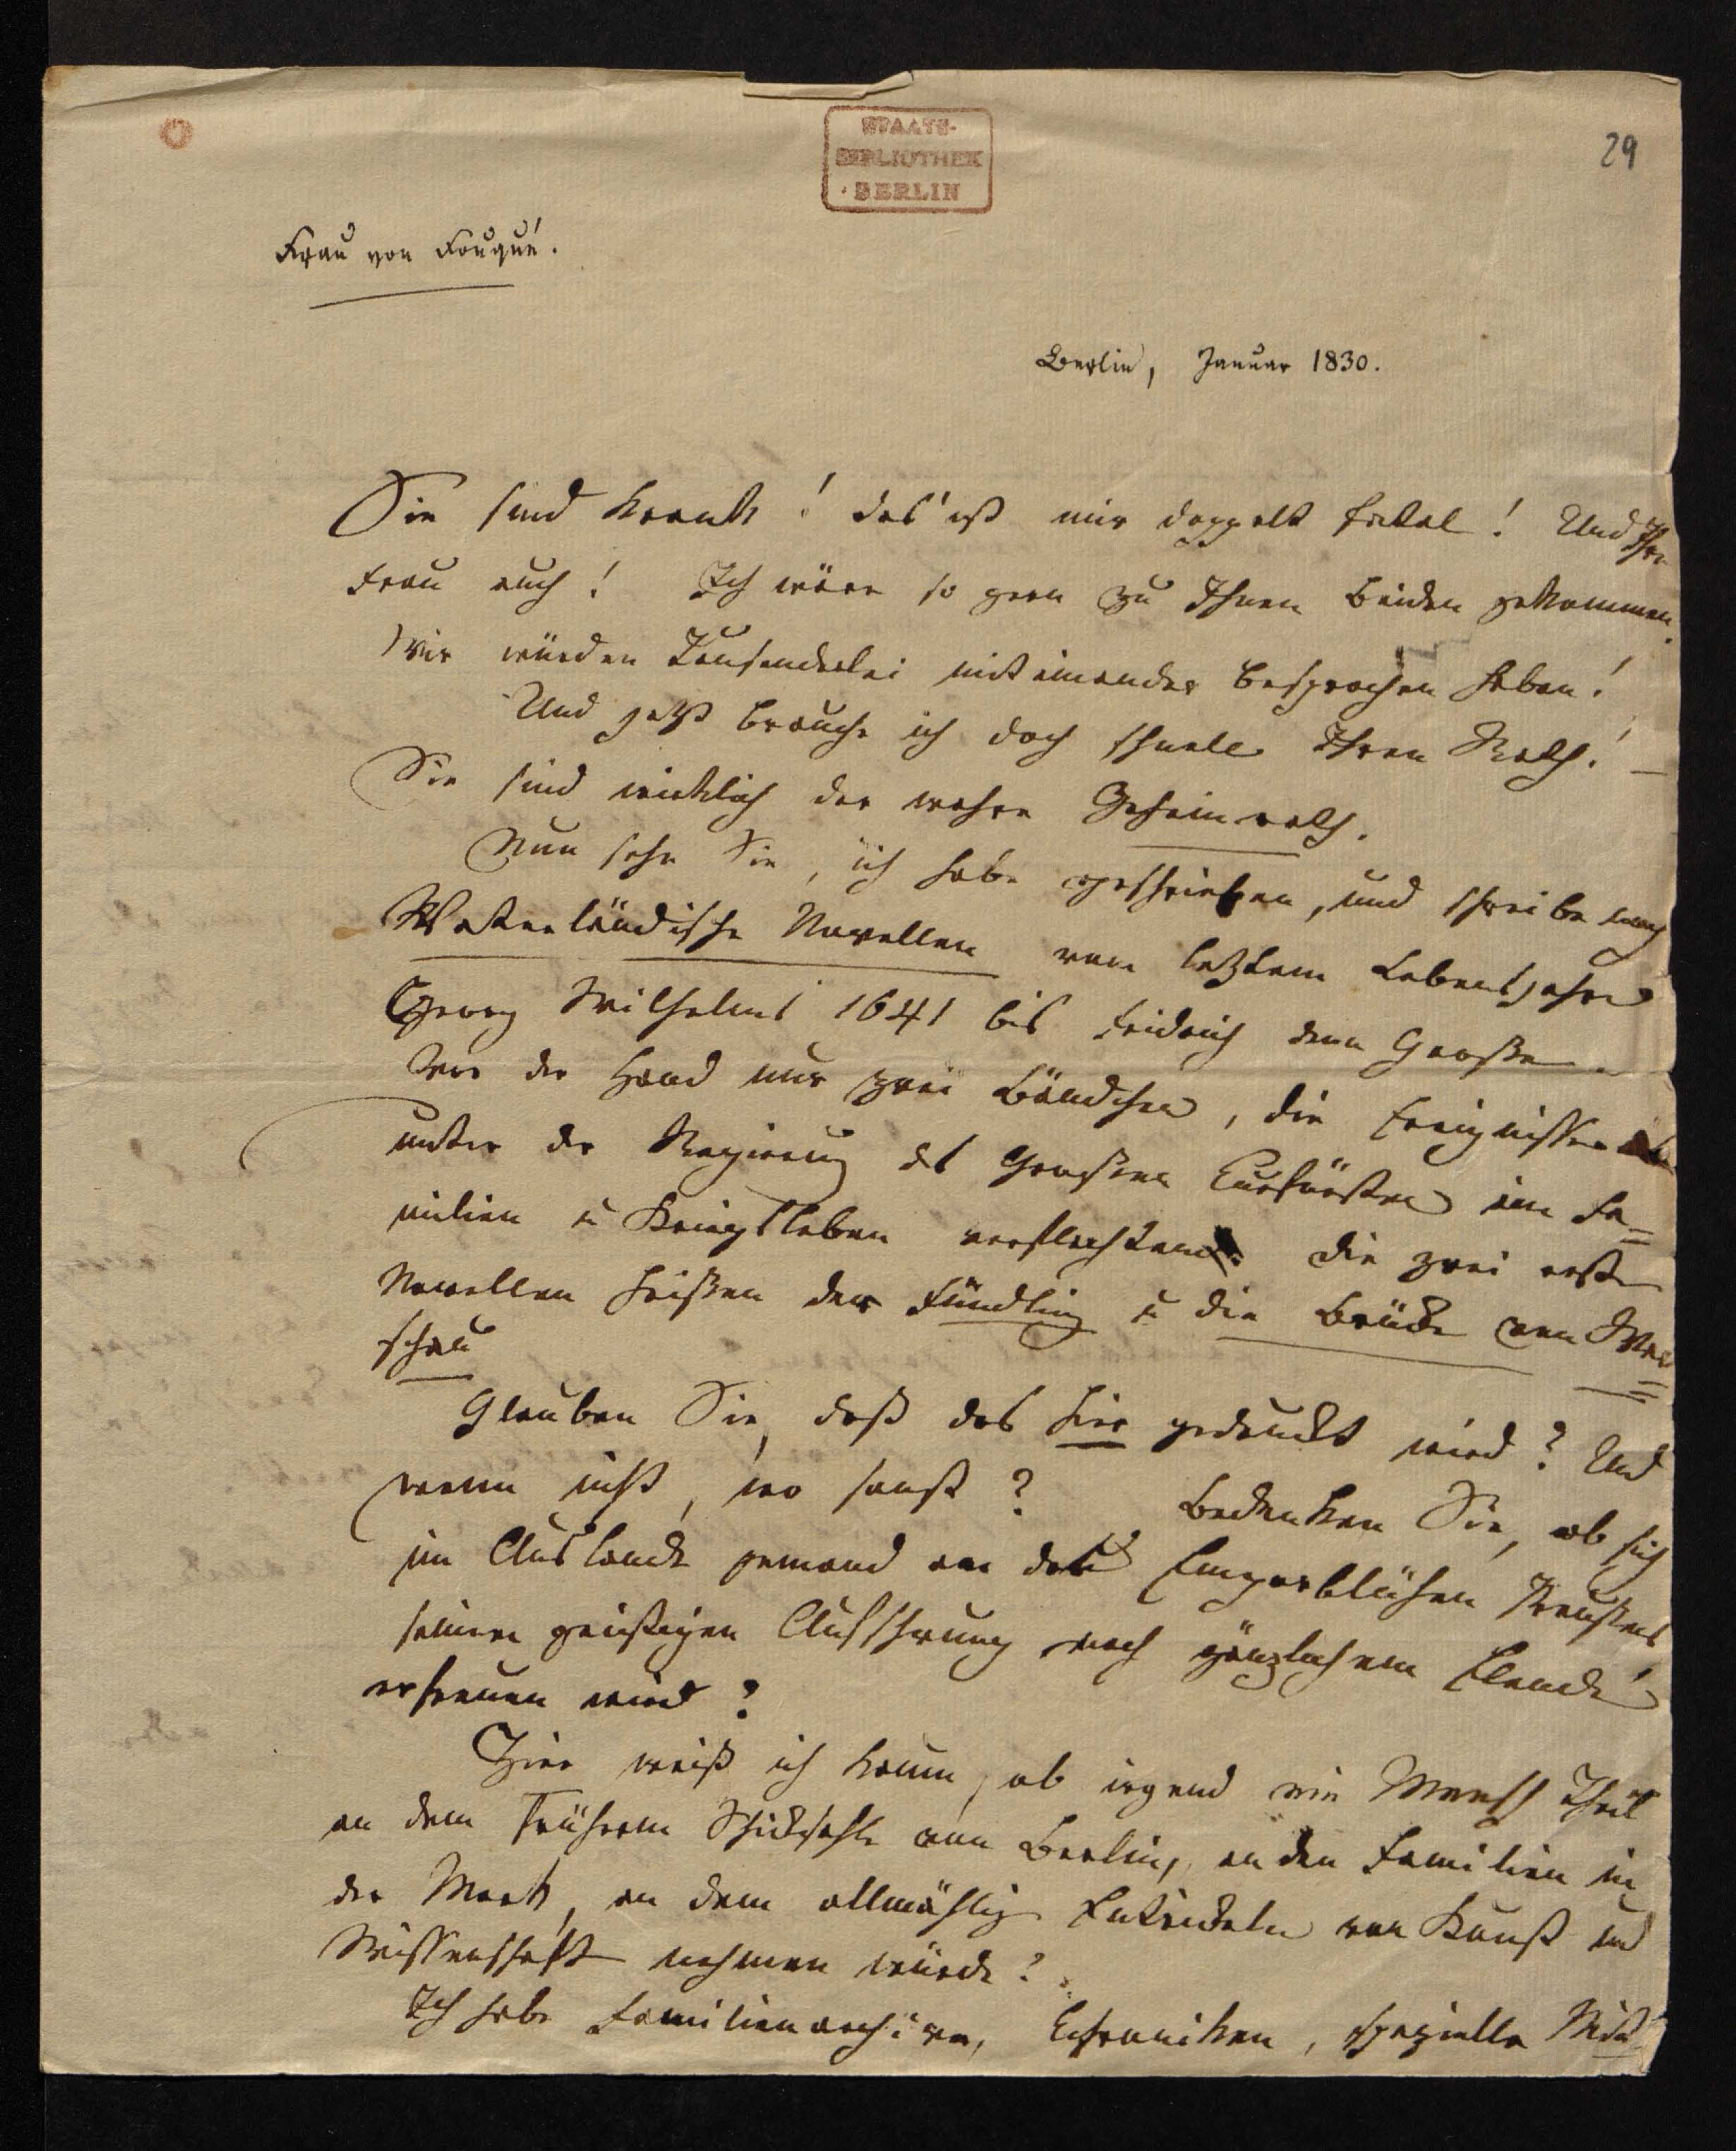 29
STAATS-
BIBLIOTHEK
BERLIN
Frau von Fouqué.
Berlin, Januar 1830.
Sie sind krank! das ist mir doppelt fatal! Und Ihre
Frau auch! Ich wäre so gern zu Ihnen beiden gekommen.
Wir würden Tausenderlei mit einander besprochen haben!
Und jetzt brauche ich doch schnell Ihren Rath! –
Sie sind wirklich der wahre Geheimrath.
Nun sehn Sie, ich habe geschrieben, und schreibe noch
Vaterländische Novellen vom letztem Lebensjahre
Georg Wilhelms 1641 bis Fridrich dem Großen.
Vor der Hand nur zwei Bändchen, die Ereignisse
unter der Regierung des Großen Curfürsten im Fa=
milien u Kriegsleben verflochten. Die zwei ersten
Novellen heißen der Fündling u die Brücke von War=
schau
Glauben Sie, daß das hier gedruckt wird? Und
wenn nicht, wo sonst? Bedenken Sie, ob sich
im Auslande jemand an das Emporblühen Preußens
seinen geistigen Aufschwung nach gänzlichem Elende
erfreuen wird?
Hier weiß ich kaum, ob irgend ein Mensch Theil
an dem frühern Schicksahle von Berlin, an den Familien in
der Mark, an dem allmählig Entwickeln von Kunst und
Wissenschaft nehmen würde?
Ich habe Familienarchive, Chroniken, spezielle Mit=